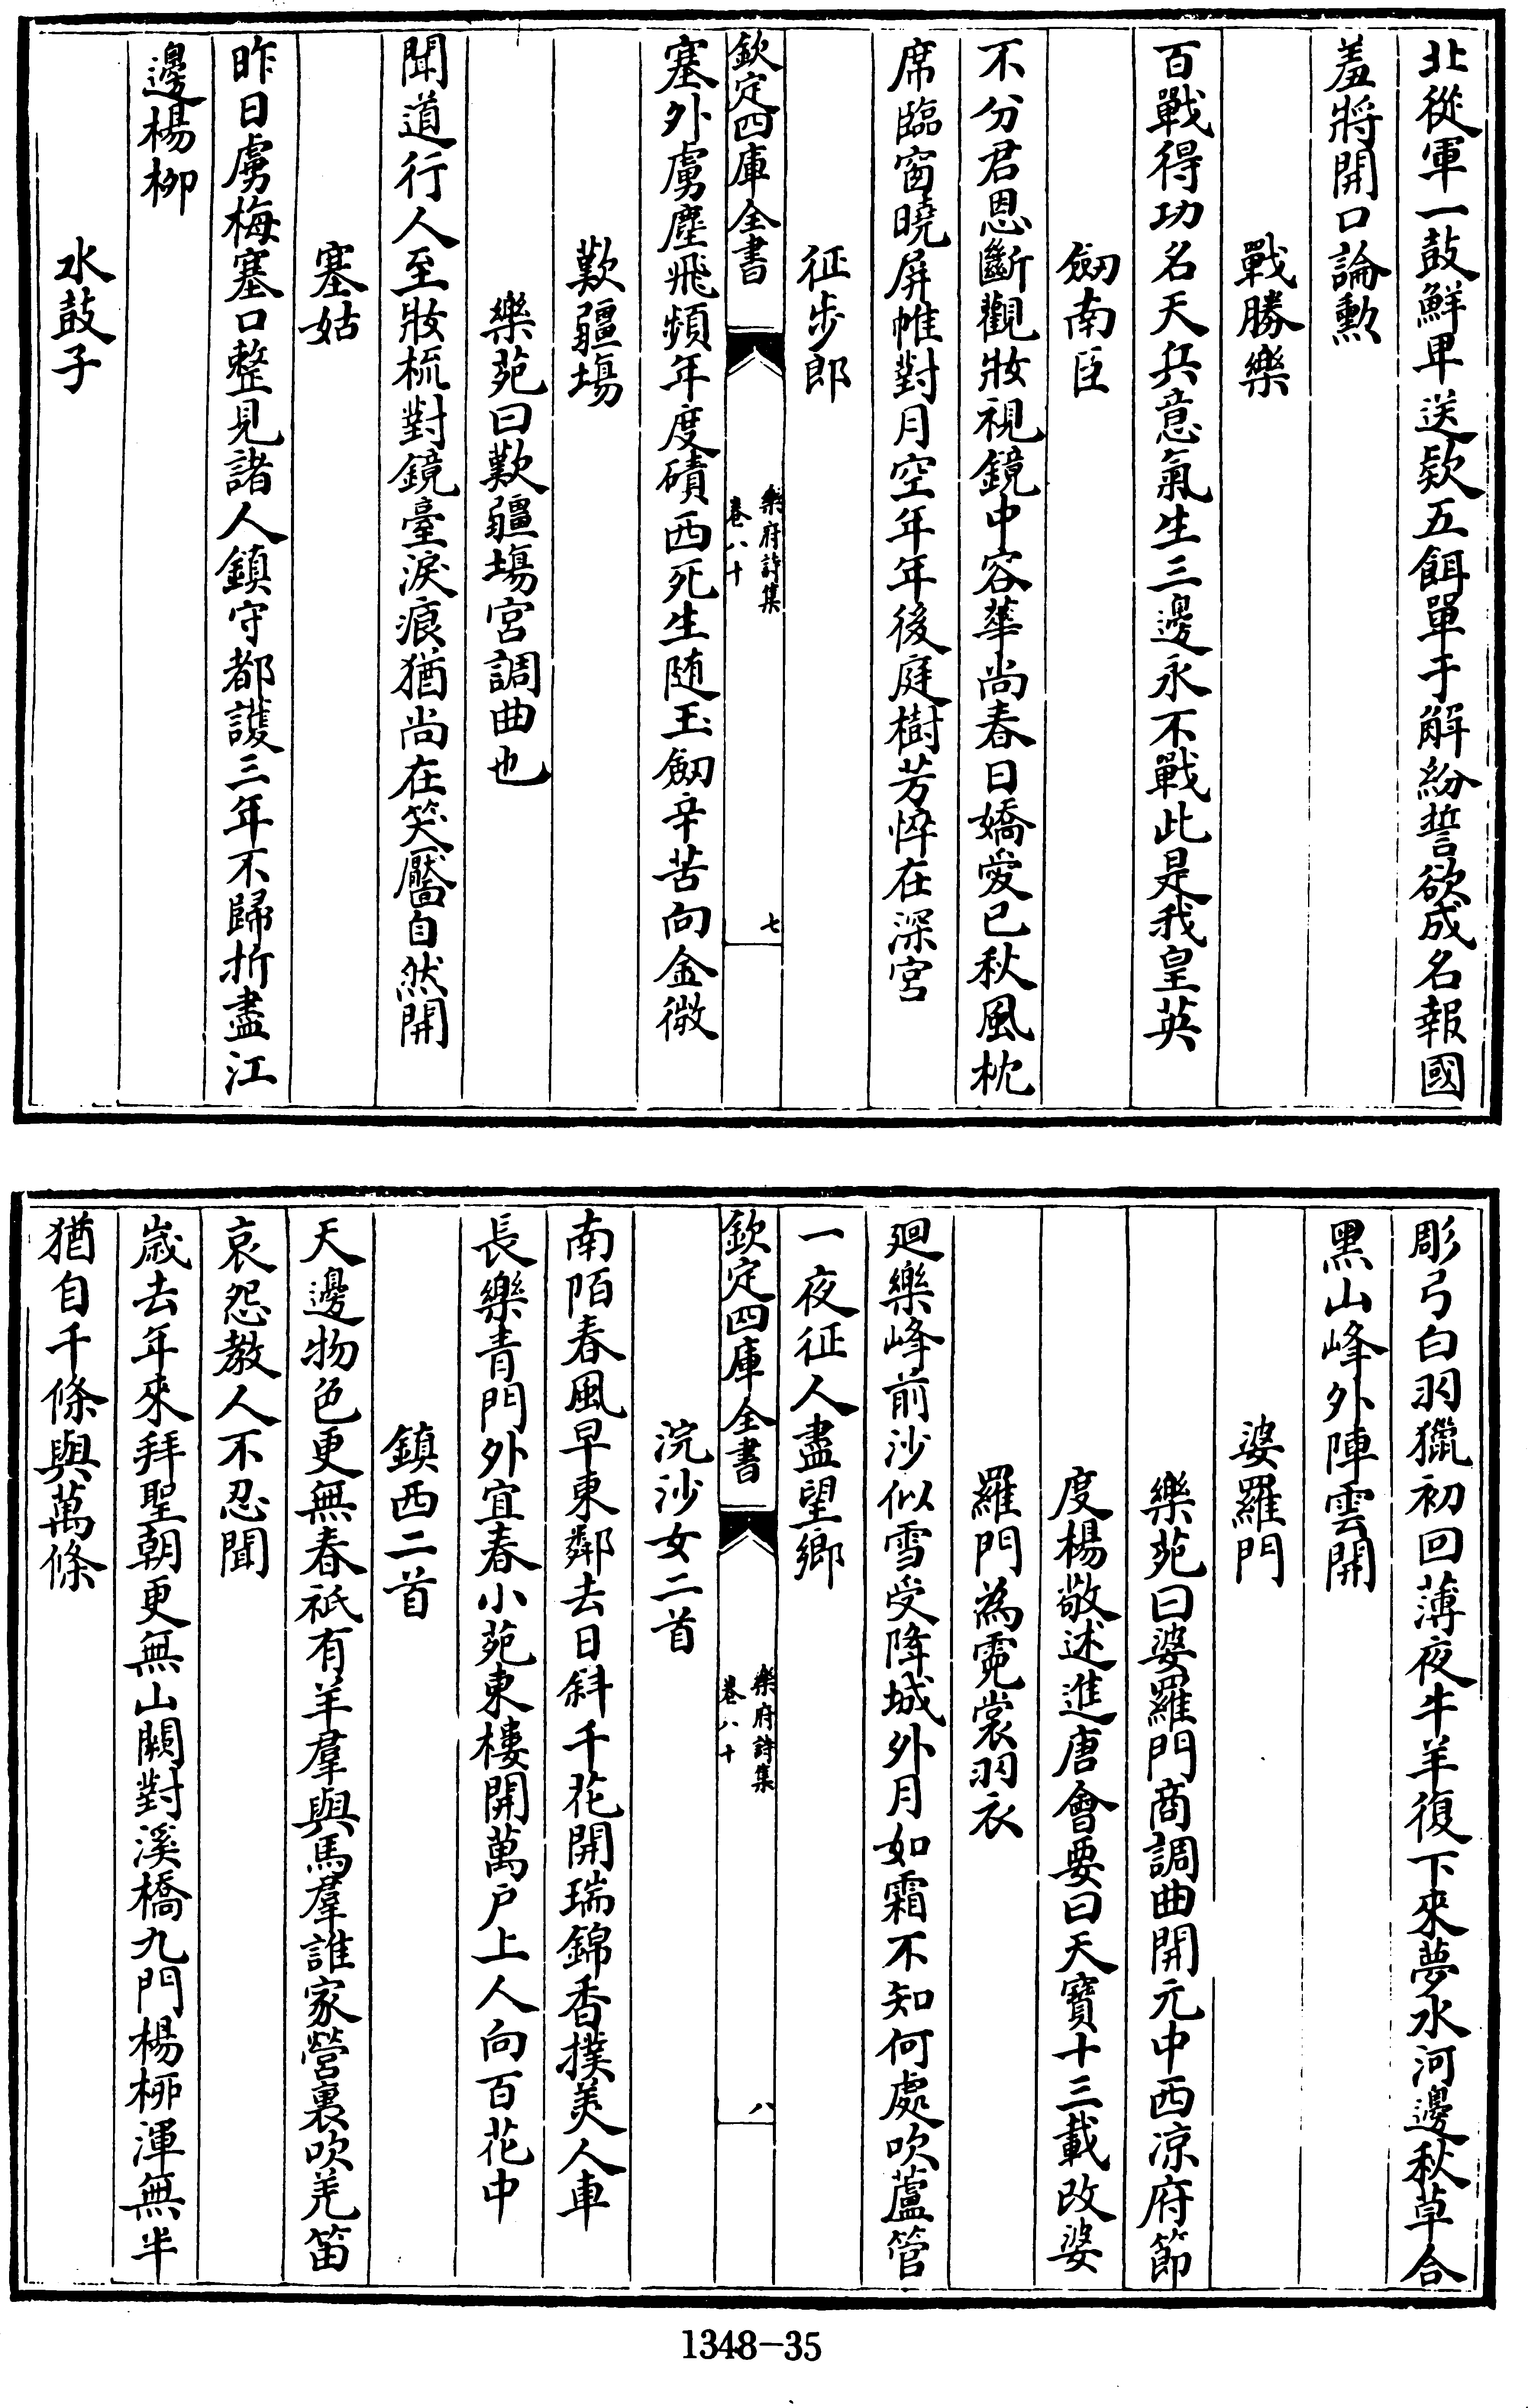 北從軍一鼓鮮卑送欵五餌單于解紛誓欲成名報國
羞將開口論勲
戰勝樂
百戰得功名天兵意氣生三邊永不戰此是我皇英
劒南臣
不分君恩斷觀妝視鏡中容華尚春日嬌愛已秋風枕
席臨窗曉屏帷對月空年年後庭樹芳悴在深宮
征步郎
欽定四庫全書
樂府詩集
卷八十
七
塞外虜塵飛頻年度磧西死生随玉劒辛苦向金微
歎疆場
樂苑曰歎疆場宮調曲也
聞道行人至妝梳對鏡臺淚痕猶尚在笑靨自然開
塞姑
昨日虜梅塞口整見諸人鎮守都護三年不歸折盡江
邊楊柳
水鼓子
彫弓白羽獵初回薄夜牛羊復下來夢水河邊秋草合
黑山峰外陣雲開
婆羅門
樂苑曰婆羅門商調曲開元中西凉府節
度楊敬述進唐會要曰天寶十三載改婆
羅門為霓裳羽衣
廻樂峰前沙似雪受降城外月如霜不知何處吹蘆管
一夜征人盡望鄉
欽定四庫全書
樂府詩集
卷八十
八
浣沙女二首
南陌春風早東鄰去日斜千花開瑞錦香撲美人車
長樂青門外宜春小苑東樓開萬户上人向百花中
鎮西二首
天邊物色更無春祇有羊羣與馬羣誰家營裏吹羌笛
哀怨教人不忍聞
歲去年來拜聖朝更無山闕對溪橋九門楊栁渾無半
猶自千條與萬條
1348-35